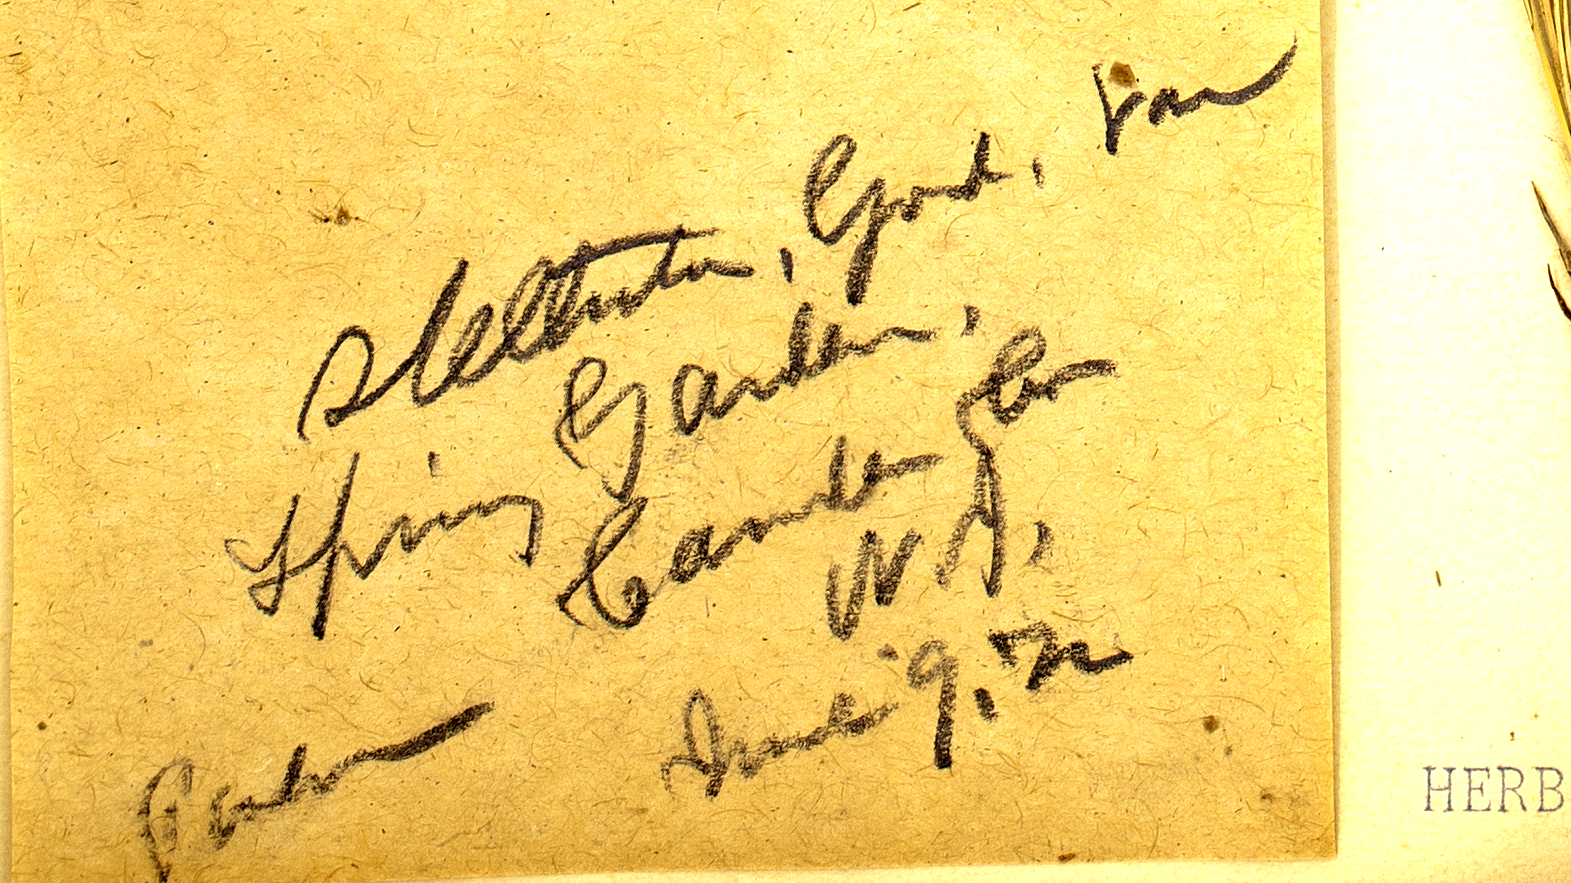 stellulata, Good. var
Spring Garden,
Camden Co
N.J.
June 9, '72
Parker
HERB